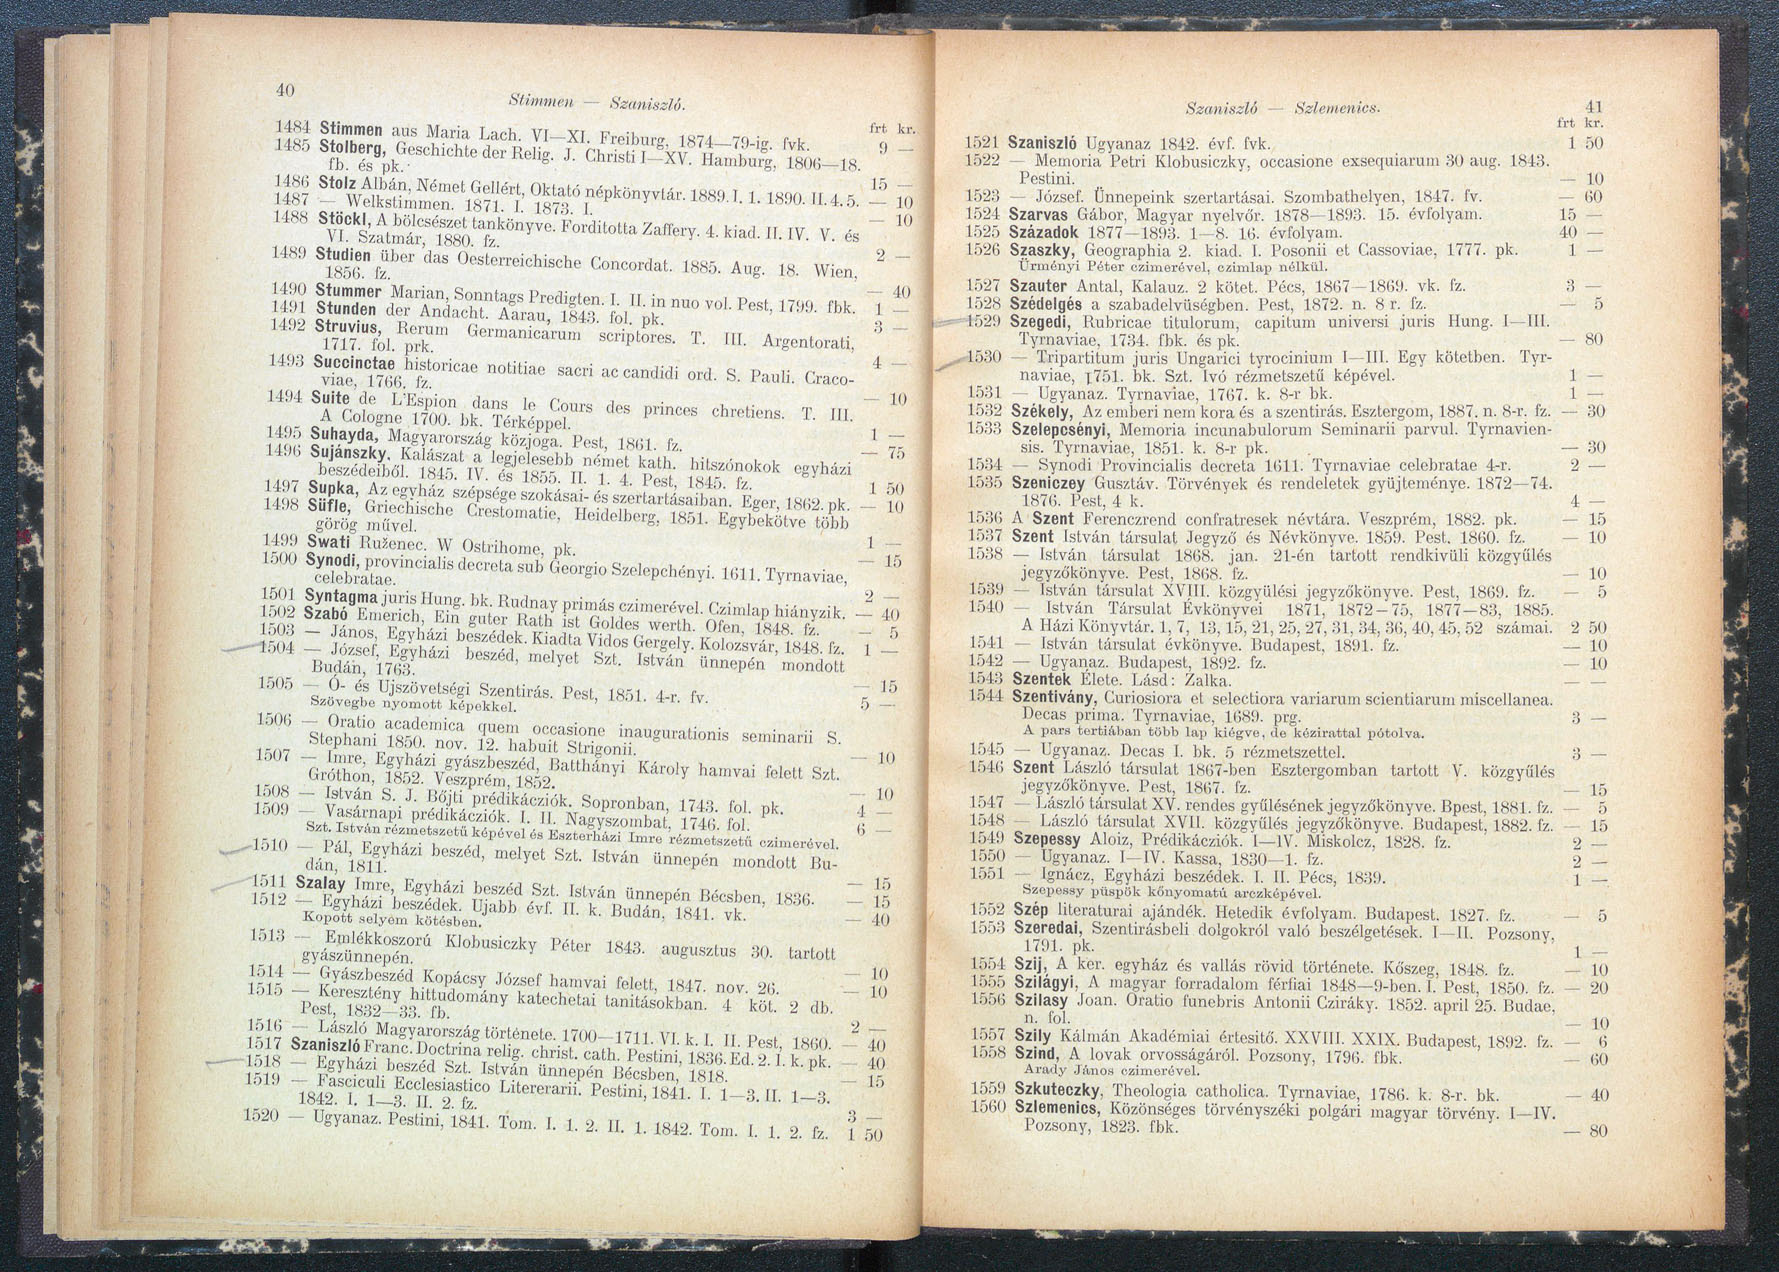 40
Stimmen — Szaniszló.
frt kr.
1484 Stimmen aus Maria Lach. VI—XI. Freiburg, 1874—79-ig. fvk. 9 —
1485 Stolberg, Geschichte der Relig. J. Christi I—XV. Hamburg, 1806—18.
fb. és pk. 15 —
1486 Stolz Albán, Német Gellért, Oktató népkönyvtár. 1889. I. 1. 1890. II. 4. 5. — 10
1487 — Welkstimmen. 1871. I. 1873. I. — 10
1488 Stöckl, A bölcsészet tankönyve. Forditotta Zaffery. 4. kiad. II. IV. V. és
VI. Szatmár, 1880. fz. 2 —
1489 Studien über das Oesterreichische Concordat. 1885. Aug. 18. Wien,
1856. fz. — 40
1490 Stummer Marian, Sonntags Predigten. I. II. in nuo vol. Pest, 1799. fbk. 1 —
1491 Stunden der Andacht. Aarau, 1843. fol. pk. 3 —
1492 Struvius, Rerum Germanicarum scriptores. T. III. Argentorati,
1717. fol. prk. 4 —
1493 Succinctae historicae notitiae sacri ac candidi ord. S. Pauli. Craco-
viae, 1766. fz. — 10
1494 Suite de L'Espion dans le Cours des princes chretiens. T. III.
A Cologne 1700. bk. Térképpel. 1 —
1495 Suhayda, Magyarország közjoga. Pest, 1861. fz. — 75
1496 Sujánszky, Kalászat a legjelesebb német kath. hitszónokok egyházi
beszédeiből. 1845. IV. és 1855. II. 1. 4. Pest, 1845. fz. 1 50
1497 Supka, Az egyház szépsége szokásai- és szertartásaiban. Eger, 1862. pk. — 10
1498 Süfle, Griechische Crestomatie, Heidelberg, 1851. Egybekötve több
görög művel. 1 —
1499 Swati Ruženec. W Ostrihome, pk. — 15
1500 Synodi, provincialis decreta sub Georgio Szelepchényi. 1611. Tyrnaviae,
celebratae. 2 —
1501 Syntagma juris Hung. bk. Rudnay primás czimerével. Czimlap hiányzik. — 40
1502 Szabó Emerich, Ein guter Rath ist Goldes werth. Ofen, 1848. fz. — 5
1503 — János, Egyházi beszédek. Kiadta Vidos Gergely. Kolozsvár, 1848. fz. 1 —
1504 — József, Egyházi beszéd, melyet Szt. István ünnepén mondott
Budán, 1763. — 15
1505 — Ó- és Ujszövetségi Szentirás. Pest, 1851. 4-r. fv. 5 —
Szövegbe nyomott képekkel.
1506 — Oratio academica quem occasione inaugurationis seminarii S.
Stephani 1850. nov. 12. habuit Strigonii. — 10
1507 — Imre, Egyházi gyászbeszéd, Batthányi Károly hamvai felett Szt.
Gróthon, 1852. Veszprém, 1852. — 10
1508 — István S. J. Bőjti prédikácziók. Sopronban, 1743. fol. pk. 4 —
1509 — Vasárnapi prédikácziók. I. II. Nagyszombat, 1746. fol. 6 —
Szt. István rézmetszetű képével és Eszterházi Imre rézmetszetű czimerével.
1510 — Pál, Egyházi beszéd, melyet Szt. István ünnepén mondott Bu-
dán, 1811. — 15
1511 Szalay Imre, Egyházi beszéd Szt. István ünnepén Bécsben, 1836. — 15
1512 — Egyházi beszédek. Ujabb évf. II. k. Budán, 1841. vk. — 40
Kopott selyem kötésben.
1513 — Emlékkoszorú Klobusiczky Péter 1843. augusztus 30. tartott
gyászünnepén. — 10
1514 — Gyászbeszéd Kopácsy József hamvai felett, 1847. nov. 26. — 10
1515 — Keresztény hittudomány katechetai tanitásokban. 4 köt. 2 db.
Pest, 1832—33. fb. 2 —
1516 — László Magyarország története. 1700—1711. VI. k. I. II. Pest, 1860. — 40
1517 Szaniszló Franc. Doctrina relig. christ. cath. Pestini, 1836. Ed. 2. I. k. pk. — 40
1518 — Egyházi beszéd Szt. István ünnepén Bécsben, 1818. — 15
1519 — Fasciculi Ecclesiastico Litererarii. Pestini, 1841. I. 1—3. II. 1—3.
1842. I. 1—3. II. 2. fz. 3 —
1520 — Ugyanaz. Pestini, 1841. Tom. I. 1. 2. II. 1. 1842. Tom. I. 1. 2. fz. 1 50
Szaniszló — Szlemenics. 41
frt kr.
1521 Szaniszló Ugyanaz 1842. évf. fvk. 1 50
1522 — Memoria Petri Klobusiczky, occasione exsequiarum 30 aug. 1843.
Pestini. — 10
1523 — József. Ünnepeink szertartásai. Szombathelyen, 1847. fv. — 60
1524 Szarvas Gábor, Magyar nyelvőr. 1878—1893. 15. évfolyam. 15 —
1525 Századok 1877—1893. 1—8. 16. évfolyam. 40 —
1526 Szaszky, Geographia 2. kiad. I. Posonii et Cassoviae, 1777. pk. 1 —
Ürményi Péter czimerével, czimlap nélkül.
1527 Szauter Antal, Kalauz. 2 kötet. Pécs, 1867—1869. vk. fz. 3 —
1528 Szédelgés a szabadelvüségben. Pest, 1872. n. 8 r. fz. — 5
1529 Szegedi, Rubricae titulorum, capitum universi juris Hung. I—III.
Tyrnaviae, 1734. fbk. és pk. — 80
1530 — Tripartitum juris Ungarici tyrocinium I—III. Egy kötetben. Tyr-
naviae, 1751. bk. Szt. Ivó rézmetszetű képével. 1 —
1531 — Ugyanaz. Tyrnaviae, 1767. k. 8-r bk. 1 —
1532 Székely, Az emberi nem kora és a szentirás. Esztergom, 1887. n. 8-r. fz. — 30
1533 Szelepcsényi, Memoria incunabulorum Seminarii parvul. Tyrnavien-
sis. Tyrnaviae, 1851. k. 8-r pk. — 30
1534 — Synodi Provincialis decreta 1611. Tyrnaviae celebratae 4-r. 2 —
1535 Szeniczey Gusztáv. Törvények és rendeletek gyüjteménye. 1872—74.
1876. Pest, 4 k. 4 —
1536 A Szent Ferenczrend confratresek névtára. Veszprém, 1882. pk. — 15
1537 Szent István társulat Jegyző és Névkönyve. 1859. Pest. 1860. fz. — 10
1538 — István társulat 1868. jan. 21-én tartott rendkivüli közgyűlés
jegyzőkönyve. Pest, 1868. fz. — 10
1539 — István társulat XVIII. közgyülési jegyzőkönyve. Pest, 1869. fz. — 5
1540 — István Társulat Évkönyvei 1871, 1872—75, 1877—83, 1885.
A Házi Könyvtár. 1, 7, 13, 15, 21, 25, 27, 31, 34, 36, 40, 45, 52 számai. 2 50
1541 — István társulat évkönyve. Budapest, 1891. fz. — 10
1542 — Ugyanaz. Budapest, 1892. fz. — 10
1543 Szentek Élete. Lásd: Zalka. — —
1544 Szentivány, Curiosiora et selectiora variarum scientiarum miscellanea.
Decas prima. Tyrnaviae, 1689. prg. 3 —
A pars tertiában több lap kiégve, de kézirattal pótolva.
1545 — Ugyanaz. Decas I. bk. 5 rézmetszettel. 3 —
1546 Szent László társulat 1867-ben Esztergomban tartott V. közgyűlés
jegyzőkönyve. Pest, 1867. fz. — 15
1547 — László társulat XV. rendes gyűlésének jegyzőkönyve. Bpest, 1881. fz. — 5
1548 — László társulat XVII. közgyűlés jegyzőkönyve. Budapest, 1882. fz. — 15
1549 Szepessy Aloiz, Prédikácziók. I—IV. Miskolcz, 1828. fz. 2 —
1550 — Ugyanaz. I—IV. Kassa, 1830—1. fz. 2 —
1551 — Ignácz, Egyházi beszédek. I. II. Pécs, 1839. 1 —
Szepessy püspök kőnyomatú arczképével.
1552 Szép literaturai ajándék. Hetedik évfolyam. Budapest. 1827. fz. — 5
1553 Szeredai, Szentirásbeli dolgokról való beszélgetések. I—II. Pozsony,
1791. pk. 1 —
1554 Szij, A ker. egyház és vallás rövid története. Kőszeg, 1848. fz. — 10
1555 Szilágyi, A magyar forradalom férfiai 1848—9-ben. I. Pest, 1850. fz. — 20
1556 Szilasy Joan. Oratio funebris Antonii Cziráky. 1852. april 25. Budae,
n. fol. — 10
1557 Szily Kálmán Akadémiai értesitő. XXVIII. XXIX. Budapest, 1892. fz. — 6
1558 Szind, A lovak orvosságáról. Pozsony, 1796. fbk. — 60
Arady János czimerével.
1559 Szkuteczky, Theologia catholica. Tyrnaviae, 1786. k. 8-r. bk. — 40
1560 Szlemenics, Közönséges törvényszéki polgári magyar törvény. I—IV.
Pozsony, 1823. fbk. — 80